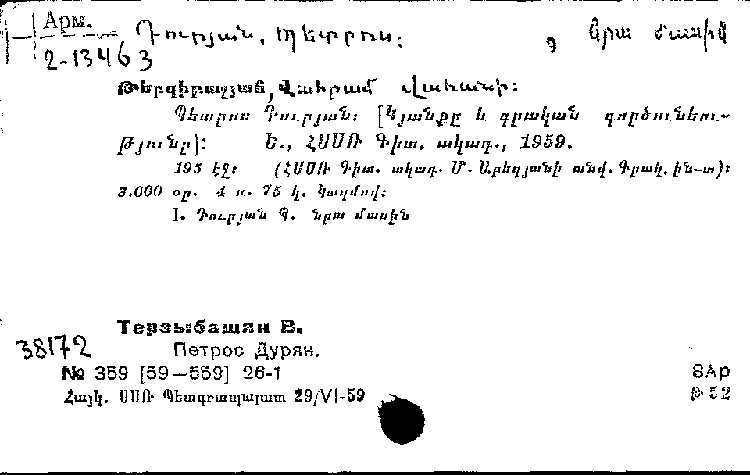 Арм.
2-13463
Դուրյան, Պետրոս:
, Նրա մասին
Թերզիբաշյան, Վահրամ Վահանի:
Պետրոս Դուրյան: [Կյանքը և գրական գործունեու-
թյունը]: Ե., ՀՍՍՌ Գիտ. ակադ., 1959.
195 էջ: (ՀՍՍՌ Գիտ. ակադ. Մ. Աբեղյանի անվ. Գրակ. ին-տ):
3.000 օր. 4 ռ. 75 կ. Կազմով:
I. Դուրյան Պ. նրա մասին
Терзыбашян В.
38172
Петрос Дурян.
№ 359 [59—559] 26-1
8Ар
Հայկ. ՍՍՌ Պետգրապալատ 29/VI-59
Թ 52